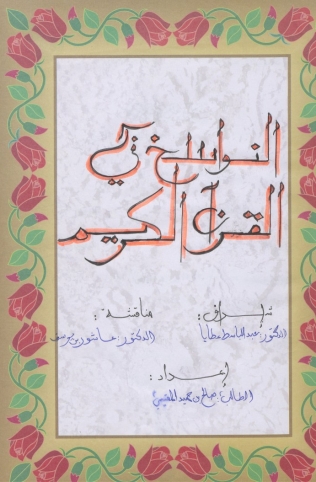 النواسخ في
القرآن الكريم
إشراف: مناقشة:
الدكتور عبد الباسط عطايا الدكتور عاشور بن يوسف
إعداد:
الطالب صالح بن حميد